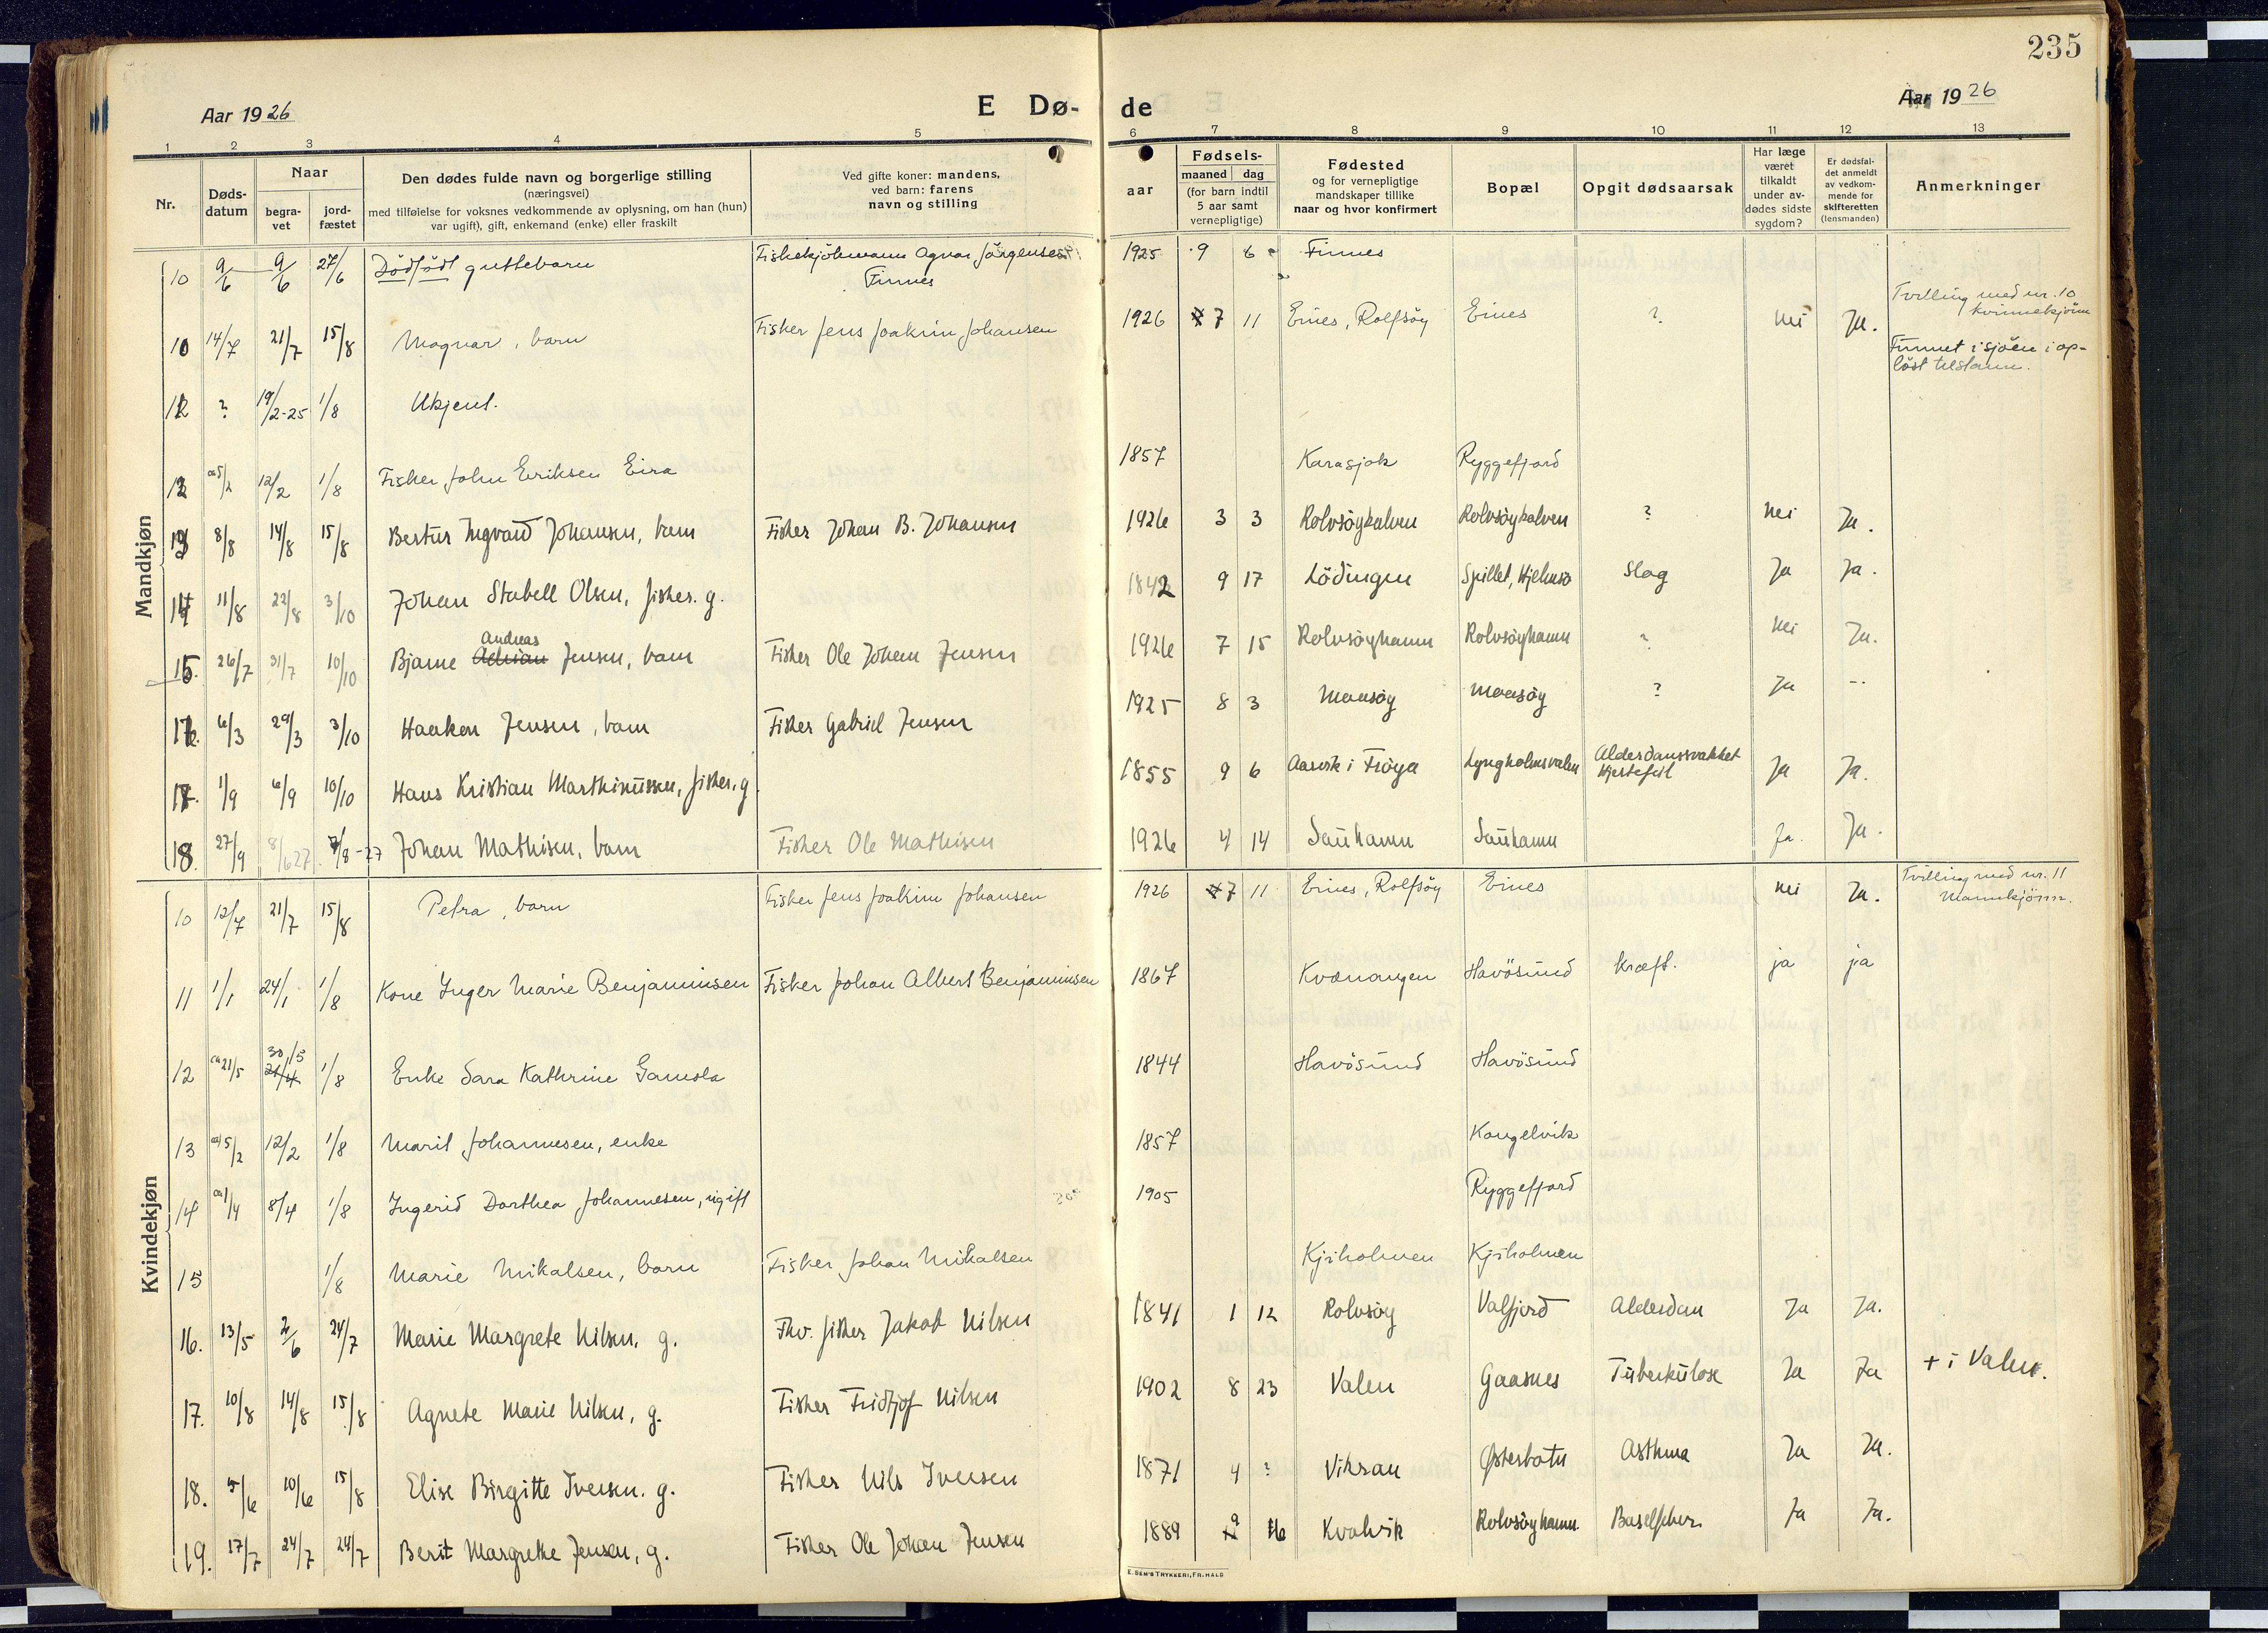 235
Aar 1926 E Dø- de Aar 1926
1 2 3 4 5 6 7 8 9 10 11 12 13
Nr.
Døds-
datum
Naar
begra-
vet
jord-
fæstet
Den dødes fulde navn og borgerlige stilling
(næringsvei)
med tilføielse for voksnes vedkommende av oplysning, om han (hun)
var ugift), gift, enkemand (enke) eller fraskilt
Ved gifte koner: mandens,
ved barn: farens
navn og stilling
aar
Fødsels-
maaned dag
(for barn indtil
5 aar samt
vernepligtige)
Fødested
og for vernepligtige
mandskaper tillike
naar og hvor konfirmert
Bopæl
Opgit dødsaarsak
Har læge
været
tilkaldt
under av-
dødes sidste
sygdom?
Er dødsfal-
det anmeldt
av vedkom-
mende for
skifteretten
(lensmanden)
Anmerkninger
Mandkjøn
10 9/6 9/6 27/6 Dödfödt guttebarn Fiskekjöbmann Agnar Jörgensen Finnes 1925 9 6 Finnes
10 14/7 21/7 15/8 Magnar, barn Fisker Jens Joakim Johansen 1926 7 11 Eines, Rolfsöy Eines ? nei Ja. Tvilling med nr. 10 kvinnekjönn
12 ? 19/2-25 1/8 Ukjent. Funnet i sjöen i op-
löst tilstann.
12 ca 5/2 12/2 1/8 Fisker John Eriksen Eira 1857 Karasjok Ryggefjord
13 8/8 14/8 15/8 Bertus Ingvard Johansen, barn Fisker Johan B. Johansen 1926 3 3 Rolvsöykalven Rolvsöykalven ? Nei Ja.
14 11/8 22/8 3/10 Johan Stabell Olsen, fisker. g. 1842 9 17 Lödingen Spillet, Hjelmsö Slag Ja Ja.
15. 26/7 31/7 10/10 Bjarne Adrian Andreas Jensen, barn Fisker Ole Johan Jensen 1926 7 15 Rolvsöyhamn Rolvsöyhamn ? Nei Ja.
6/3 29/3 3/10 Haakon Jensen, barn Fisker Gabriel Jensen 1925 8 3 Maasöy Maasöy ? Ja --
17. 1/9 6/9 10/10 Hans Kristian Marthinussen, fisker, g. 1855 9 6 i Fröya Alderdomssvakket Hjertefeil Ja Ja.
18. 27/9 8/6 27. 7/8-27 Johan Mathisen, barn Fisker Ole Mathisen 1926 4 14 Sauhamn Sauhamn Ja. Ja.
Kvindekjøn
10 12/7 21/7 15/8 Petra, barn Fisker Jens Joakim Johansen 1926 7 11 Eines, Rolfsöy Eines Nei Ja. Tvilling med nr. 11
Mannkjönn.
11 1/1 24/1 1/8 Kone Inger Marie Benjaminsen Fisker Johan Albert Benjaminsen 1867 Kvænangen Havösund kræft. ja ja
12 ca 21/5 30/5 1/8 Enke Sara Kathrine Gamsta 1844 Havösund Havösund
13 ca 5/2 12/2 1/8 Marit Johannesen, enke 1857 Kongelvik
14 ca 1/4 8/4 1/8 Ingerid Dorthea Johannesen, ugift 1905 Ryggefjord
15 1/8 Marie Mikalsen, barn Fisker Johan Mikalsen Kjiholmen Kjiholmen
16. 13/5 2/6 24/7 Marie Margrete Nilsen, g. Fhv. fisker Jakob Nilsen 1841 1 12 Rolvsöy Valfjord Alderdom Ja Ja.
17. 10/8 14/8 15/8 Agnete Marie Nilsen, g. Fisker Fridtjof Nilsen 1902 8 23 Valen Gaasnes Tuberkulose Ja Ja + i Valen.
18. 5/6 10/6 15/8 Elise Birgitte Iversen. g. Fisker Nils Iversen 1871 4 ? Vikran Østerbotn Asthma Ja Ja.
19. 17/7 24/7 24/7 Berit Margrethe Jensen, g. Fisker Ole Johan Jensen 1889 9 16 Kvalvik Rolvsöyhamn Barselfeber Ja Ja.
E. SEM'S TRYKKERI, FR.HALD